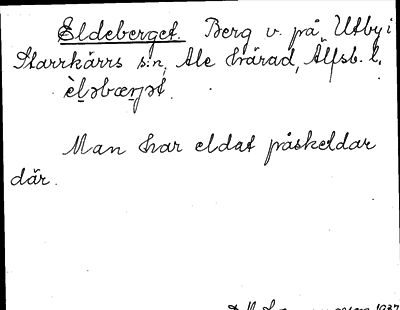 Eldeberget. Berg v. på Utby i
Starrkärrs s:n, Ale härad, Älfsb. l.
èl̥əbærjət.
Man har eldat påskeldar
där.
1937